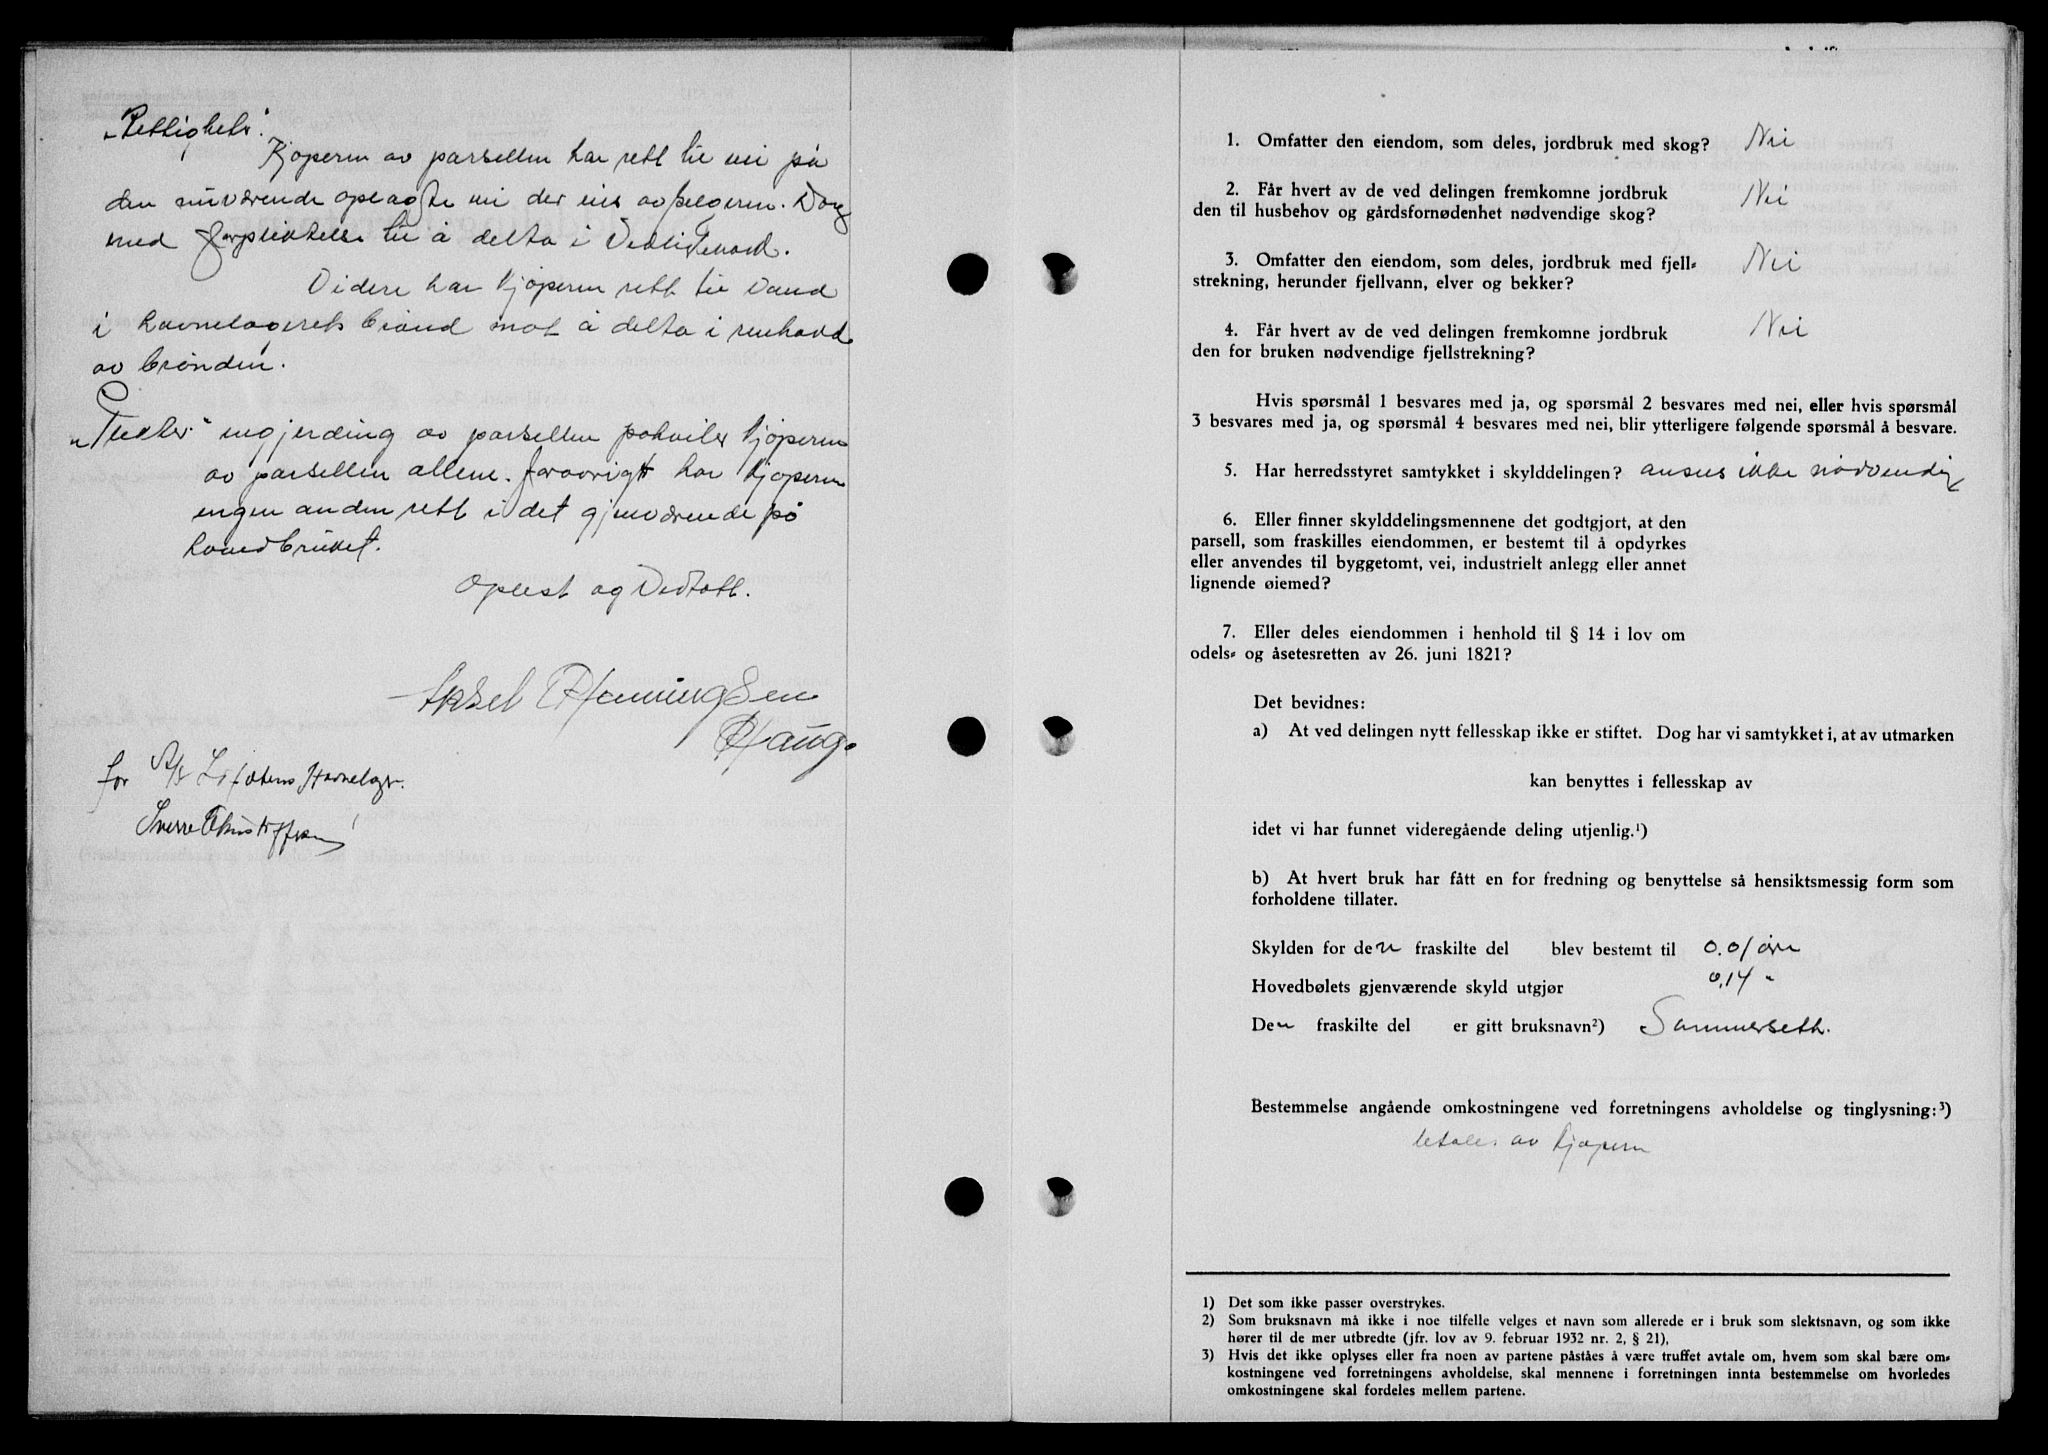 "Rettigheter".
Kjøperen av parsellen har rett til vei på
den nuværende oplagte vei der eies av selgeren. Dog
med forpliktelse til å delta i Vedlikehold.
Videre har kjøperen rett til Vand
i havnelagerets brønd mot å delta i renhold
av brønden.
"Plikter" ingjerding av parsellen påhviler kjøperen
av parsellen allene. foravrigt har kjøperen
ingen anden rett i det gjenværende på
hovedbruket.
Oplest og Vedtatt.
Aksel Henningsen
Haug.
for A/S Lofotens Havnelager.
Sverre Christoffersen
1. Omfatter den eiendom, som deles, jordbruk med skog? Nei
2. Får hvert av de ved delingen fremkomne jordbruk Nei
den til husbehov og gårdsfornødenhet nødvendige skog?
3. Omfatter den eiendom, som deles, jordbruk med fjell- Nei
strekning, herunder fjellvann, elver og bekker?
4. Får hvert av de ved delingen fremkomne jordbruk Nei
den for bruken nødvendige fjellstrekning?
Hvis spørsmål 1 besvares med ja, og spørsmål 2 besvares med nei, eller hvis spørsmål
3 besvares med ja, og spørsmål 4 besvares med nei, blir ytterligere følgende spørsmål å besvare.
5. Har herredsstyret samtykket i skylddelingen? ansees ikke nødvendig
6. Eller finner skylddelingsmennene det godtgjort, at den
parsell, som fraskilles eiendommen, er bestemt til å opdyrkes
eller anvendes til byggetomt, vei, industrielt anlegg eller annet
lignende øiemed?
7. Eller deles eiendommen i henhold til § 14 i lov om
odels- og åsetesretten av 26. juni 1821?
Det bevidnes:
a) At ved delingen nytt fellesskap ikke er stiftet. Dog har vi samtykket i, at av utmarken
kan benyttes i fellesskap av
idet vi har funnet videregående deling utjenlig.¹)
b) At hvert bruk har fått en for fredning og benyttelse så hensiktsmessig form som
forholdene tillater.
Skylden for den fraskilte del blev bestemt til 0.01 øre
Hovedbølets gjenværende skyld utgjør 0,14 "
Den fraskilte del er gitt bruksnavn²) Sommerseth.
Bestemmelse angående omkostningene ved forretningens avholdelse og tinglysning:³)
betales av kjøperen
1) Det som ikke passer overstrykes.
2) Som bruksnavn må ikke i noe tilfelle velges et navn som allerede er i bruk som slektsnavn, og som ikke
hører til de mer utbredte (jfr. lov av 9. februar 1932 nr. 2, § 21),
3) Hvis det ikke oplyses eller fra noen av partene påstås å være truffet avtale om, hvem som skal bære om-
kostningene ved forretningens avholdelse, skal mennene i forretningen innta bestemmelse om hvorledes
omkostningene skal fordeles mellem partene.